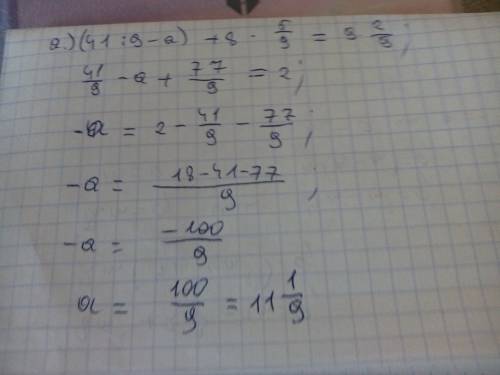 a.) (41 : 9 - a) + 8 - 5/9 = 9 2/9;
41/9 - a + 77/9 = 2;
-a = 2 - 41/9 - 77/9;
-a = 18-41-77/9;
-a = -100/9
a = 100/9 = 11 1/9